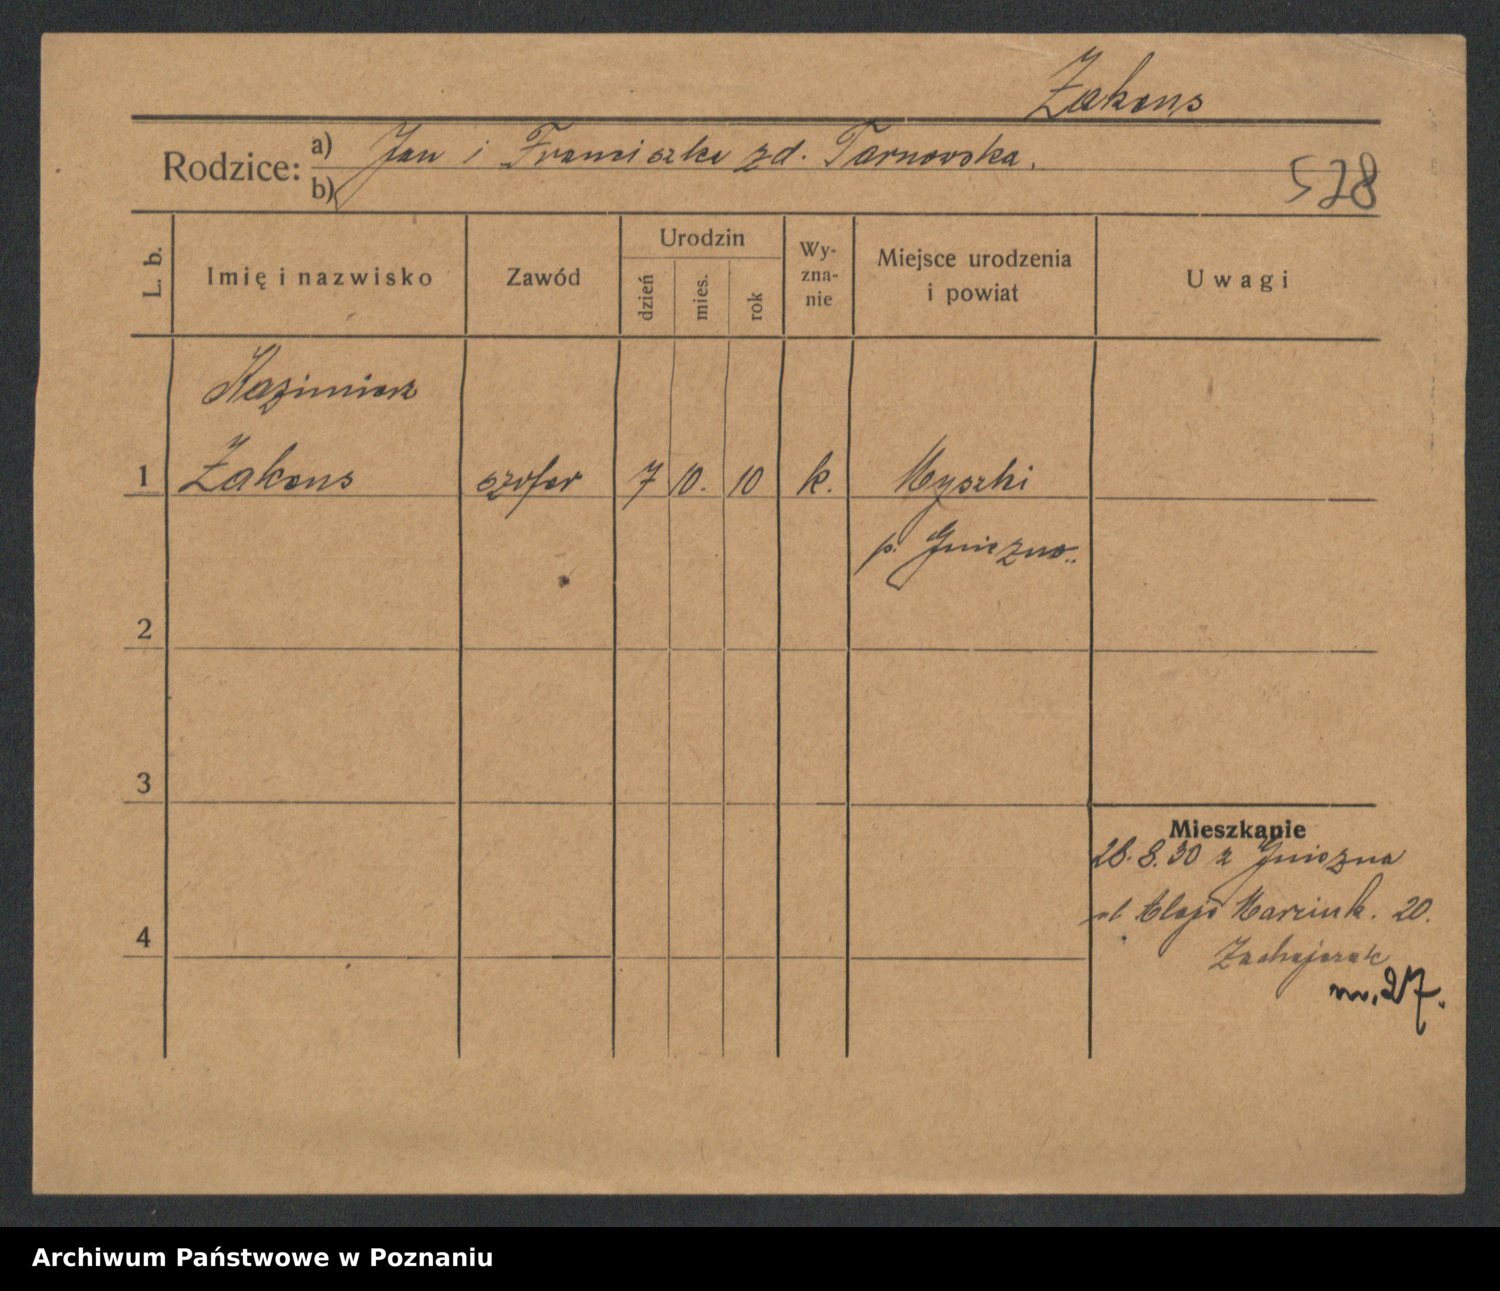 Żakons
Rodzice: a) Jan i Franciszka zd. Tarnowska.
b)
528
L. b.
Imię i nazwisko
Zawód
Urodzin
dzień
mies.
rok
Wy-
zna-
nie
Miejsce urodzenia
i powiat
Uwagi
Kazimierz
1 Żakons szofer 7 10. 10 k. Myszki
p. Gniezno..
2
3
Mieszkanie
28.8.30 z Gniezna
ul. Aleje Marcink. 20.
4
m. 27.
Archiwum Państwowe w Poznaniu